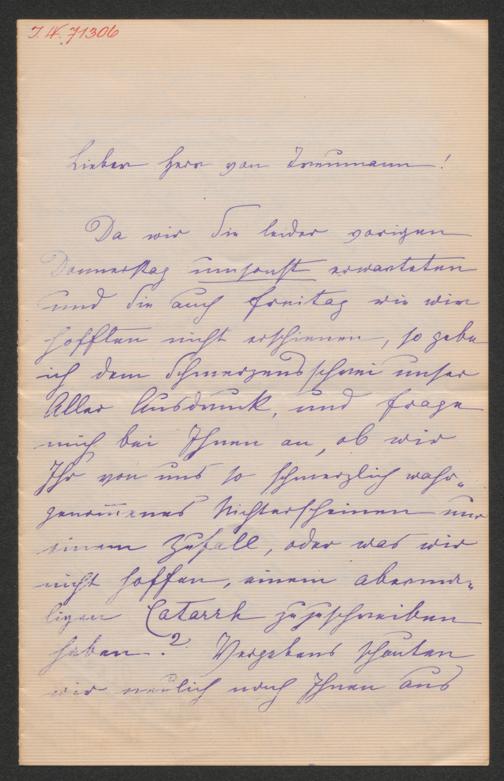 I.N. 71306
Lieber Herr von Treumann!
Da wir Sie leider vorigen
Donnerstag umsonst erwarteten
und Sie auch Freitag wie wir
hofften nicht erschienen, so gebe
ich dem Schmerzensschrei unser
Aller Ausdruck, und frage
mich bei Ihnen an, ob wir
Ihr von uns so schmerzlich wahr-
genom̅enes Nichterscheinen nur
einem Zufall, oder was wir
nicht hoffen, einem aberma-
ligen Catarrh zuzuschreiben
haben? Vergebens schauten
wir neulich nach Ihnen aus